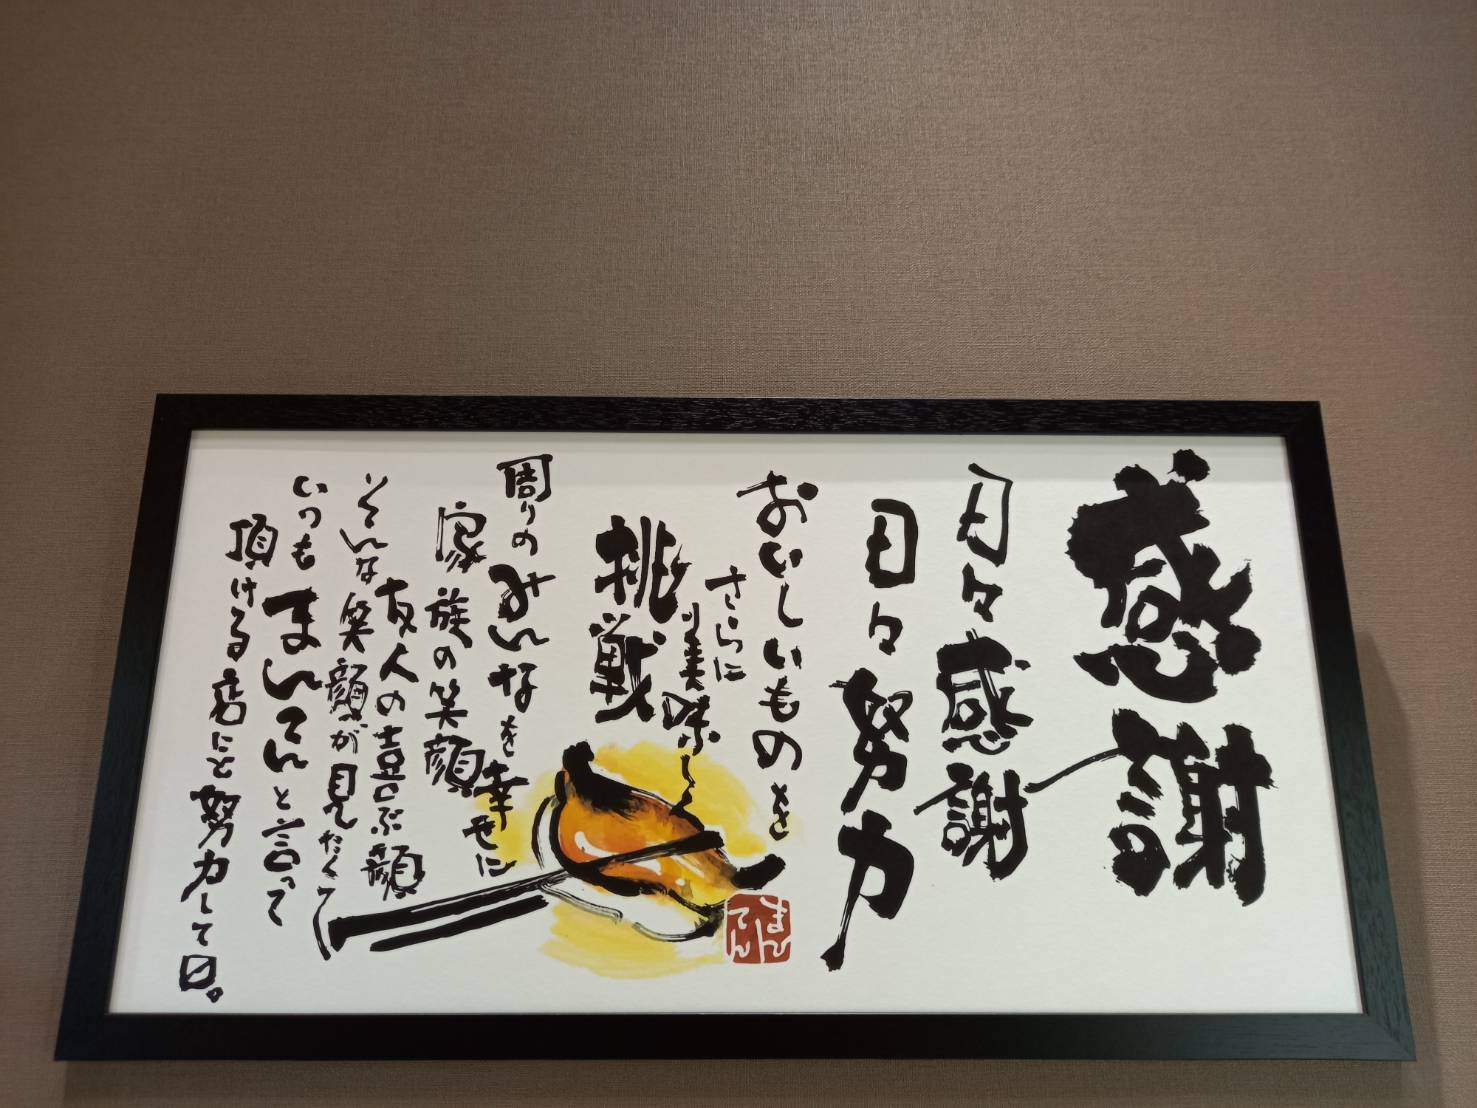 感謝
日々感謝
日々努力
おいしいものを
さらに
美味しく
挑戦
周りのみんなを幸せに
家族の笑顔
友人の喜ぶ顔
そんな笑顔が見たくて
いつもまんてんと言って
頂ける店にと努力して
まんてん